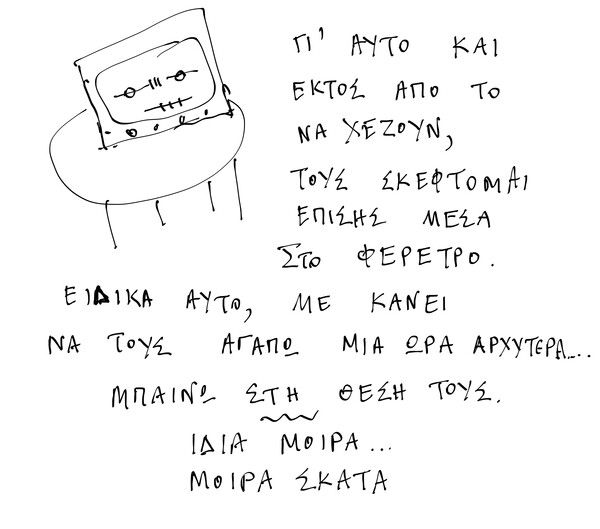 ΓΙ' ΑΥΤΟ ΚΑΙ
ΕΚΤΟΣ ΑΠΟ ΤΟ
ΝΑ ΧΕΖΟΥΝ,
ΤΟΥΣ ΣΚΕΦΤΟΜΑΙ
ΕΠΙΣΗΣ ΜΕΣΑ
ΣΤΟ ΦΕΡΕΤΡΟ.
ΕΙΔΙΚΑ ΑΥΤΟ, ΜΕ ΚΑΝΕΙ
ΝΑ ΤΟΥΣ ΑΓΑΠΩ ΜΙΑ ΩΡΑ ΑΡΧΥΤΕΡΑ...
ΜΠΑΙΝΩ ΣΤΗ ΘΕΣΗ ΤΟΥΣ.
ΙΔΙΑ ΜΟΙΡΑ...
ΜΟΙΡΑ ΣΚΑΤΑ